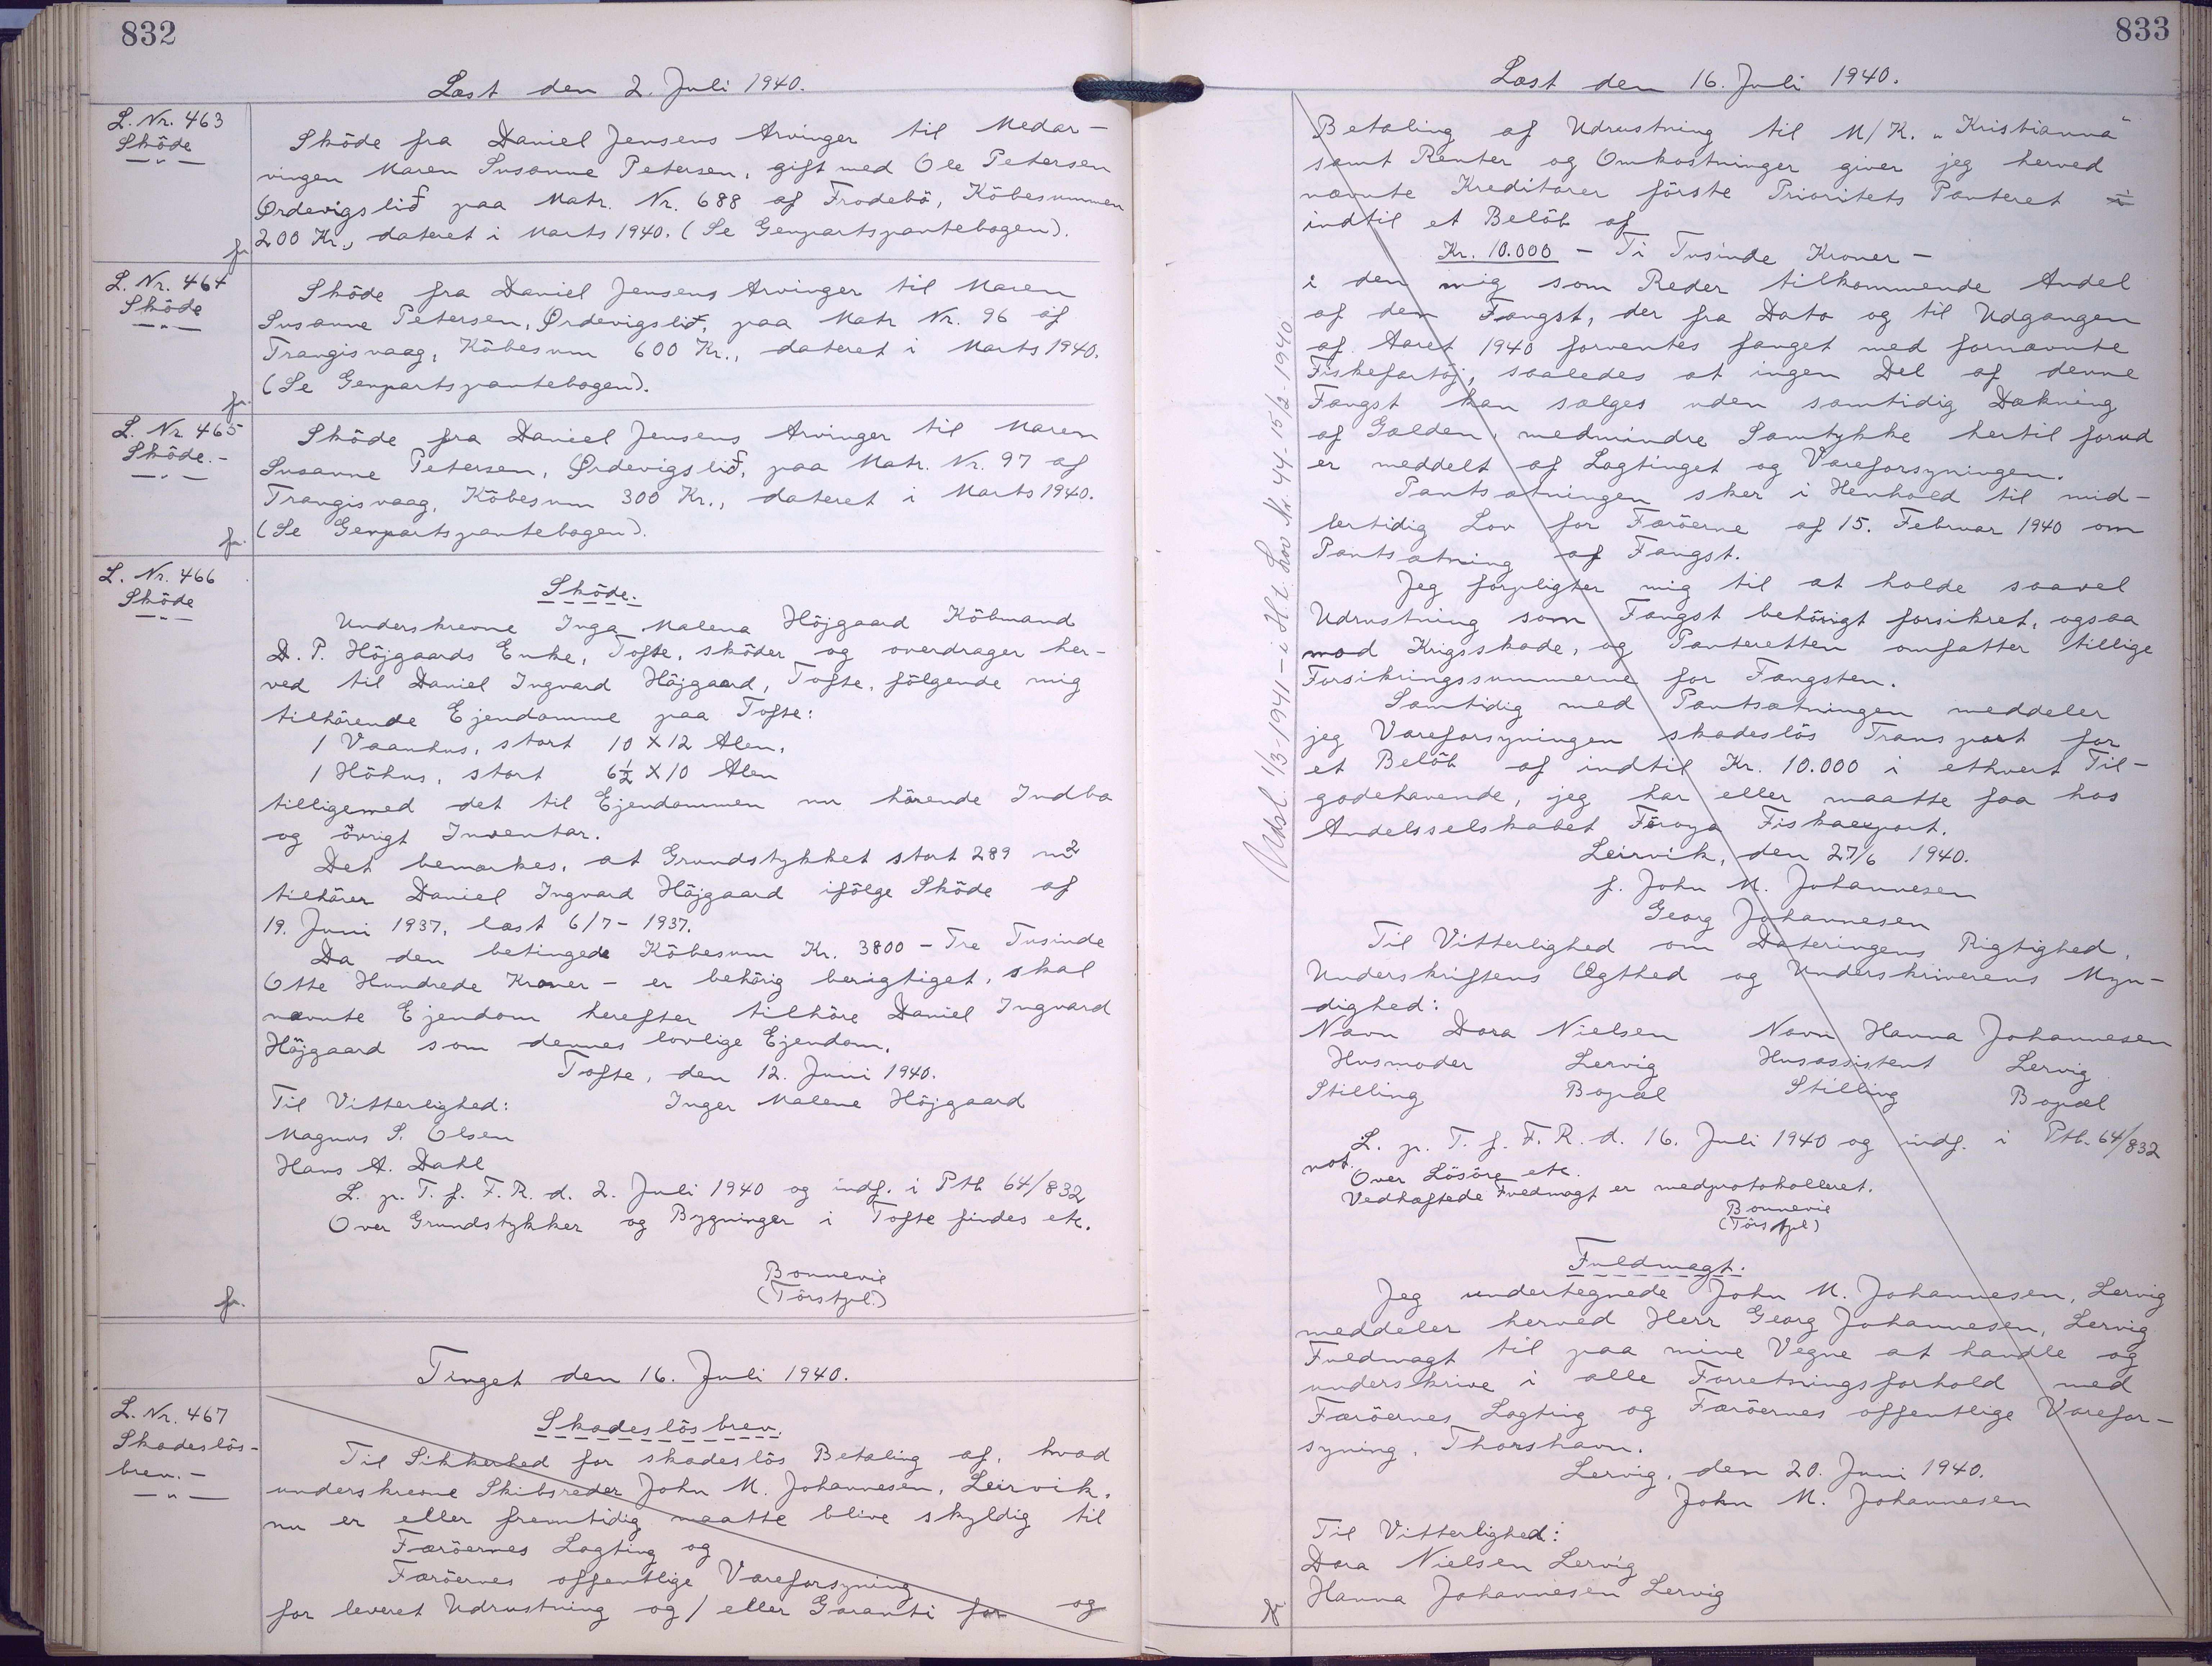 832
Læst den 2. Juli 1940.
L. Nr. 463
Sköde
Sköde fra Daniel Jensens Arvinger til Medar-
vingen Maren Susanne Petersen, gift med Ole Petersen
Ørdevigslið paa Matr. Nr. 688 af Frodebö, Köbesummen
200 Kr., dateret i Marts 1940. (Se Genpartspantebogen).
L. Nr. 464
Sköde
Sköde fra Daniel Jensens Arvinger til Maren
Susanne Petersen, Ørdevigslið, paa Matr Nr. 96 af
Trangisvaag, Köbesum 600 Kr., dateret i Marts 1940.
(Se Genpartspantebogen).
L. Nr 465
Sköde.-
Sköde fra Daniel Jensens Arvinger til Maren
Susanne Petersen, Ørdevigslið, paa Matr. Nr. 97 af
Trangisvaag, Köbesum 300 Kr., dateret i Marts 1940.
(Se Genpartspantebogen).
L. Nr. 466
Sköde
Sköde.
Underskrevne Inga Malena Höjgaard Köbmand
D. P. Höjgaards Enke, Tofte, sköder og overdrager her-
ved til Daniel Ingvard Höjgaard, Tofte, fölgende mig
tilhörende Ejendomme paa Tofte:
1 Vaanhus, stort 10 X 12 Alen,
1 Höhus, stort 6½ X 10 Alen
tilligemed det til Ejendommen nu hörende Indbo
og övrigt Inventar.
Det bemærkes, at Grundstykket stort 289 m2
tilhörer Daniel Ingvard Höjgaard ifölge Sköde af
19. Juni 1937, læst 6/7-1937.
Da den betingede Köbesum Kr. 3800 - Tre Tusinde
Otte Hundrede Kroner - er behörig berigtiget, skal
nævnte Ejendom herefter tilhöre Daniel Ingvard
Höjgaard som dennes lovlige Ejendom.
Tofte, den 12. Juni 1940.
Til Vitterlighed: Inger Malene Höjgaard
Magnus S. Olsen
Hans A. Dahl
L. p. T. f. F. R. d. 2. Juli 1940 og indf. i Ptb 64/832
Over Grundstykker og Bygninger i Tofte findes etc.
Bonnevie
(Törstpl.)
Tinget den 16. Juli 1940.
L. Nr. 467
Skadeslös-
brev.-
Skadeslösbrev.
Til Sikkerhed for skadeslös Betaling af, hvad
underskrevne Skibsreder John M. Johannesen, Leirvik,
nu er eller fremtidig maatte blive skyldig til
Færöernes Lagting og
Færöernes offentlige Vareforsyning
for leveret Udrustning og/eller Garanti for og
833
Læst den 16. Juli 1940.
Betaling af Udrustning til M/K. „Kristianna"
samt Renter og Omkostninger giver jeg herved
nævnte Kreditorer förste Prioritets Panteret i
indtil et Belöb af
Kr. 10.000 - Ti Tusinde Kroner -
i den mig som Reder tilkommende Andel
af den Fangst, der fra Dato og til Udgangen
af Aaret 1940 forventes fanget med fornævnte
Fiskefartöj, saaledes at ingen Del af denne
Fangst kan sælges uden samtidig Dækning
af Gælden, medmindre Samtykke hertil forud
er meddelt af Lagtinget og Vareforsyningen.
Pantsætningen sker i Henhold til mid-
lertidig Lov for Færöerne af 15. Februar 1940 om
Pantsætning af Fangst.
Jeg forpligter mig til at holde saavel
Udrustning som Fangst behörigt forsikret, ogsaa
mod Krigsskade, og Panteretten omfatter tillige
Forsikringssummerne for Fangsten.
Samtidig med Pantsætningen meddeler
jeg Vareforsyningen skadeslös Transport for
et Belöb af indtil Kr. 10.000 i ethvert Til-
godehavende, jeg har eller maatte faa hos
Andelsselskabet Föroya Fiskaexport.
Leirvik, den 27/6 1940.
f. John M. Johannesen
Georg Johannesen
Til Vitterlighed om Dateringens Rigtighed,
Underskriftens Ægthed og Underskriverens Myn-
dighed:
Navn Dora Nielsen Navn Hanna Johannesen
Husmoder Lervig Husassistent Lervig
Stilling Bopæl Stilling Bopæl
L. p. T. f. F. R. d. 16. Juli 1940 og indf. i Ptb. 64/832
not. Over Lösöre etc.
Vedhæftede Fuldmagt er medprotokolleret.
Bonnevie
(Törstpl)
Fuldmagt.
Jeg undertegnede John M. Johannesen, Lervig
meddeler herved Herr Georg Johannesen, Lervig
Fuldmagt til paa mine Vegne at handle og
underskrive i alle Forretningsforhold med
Færöernes Lagting og Færöernes offentlige Varefor-
syning, Thorshavn.
Lervig, den 20. Juni 1940.
John M. Johannesen
Til Vitterlighed:
Dora Nielsen Lervig
Hanna Johannesen Lervig
Udsl. 1/3-1941 - i H.t. Lov Nr. 44-15/2-1940.